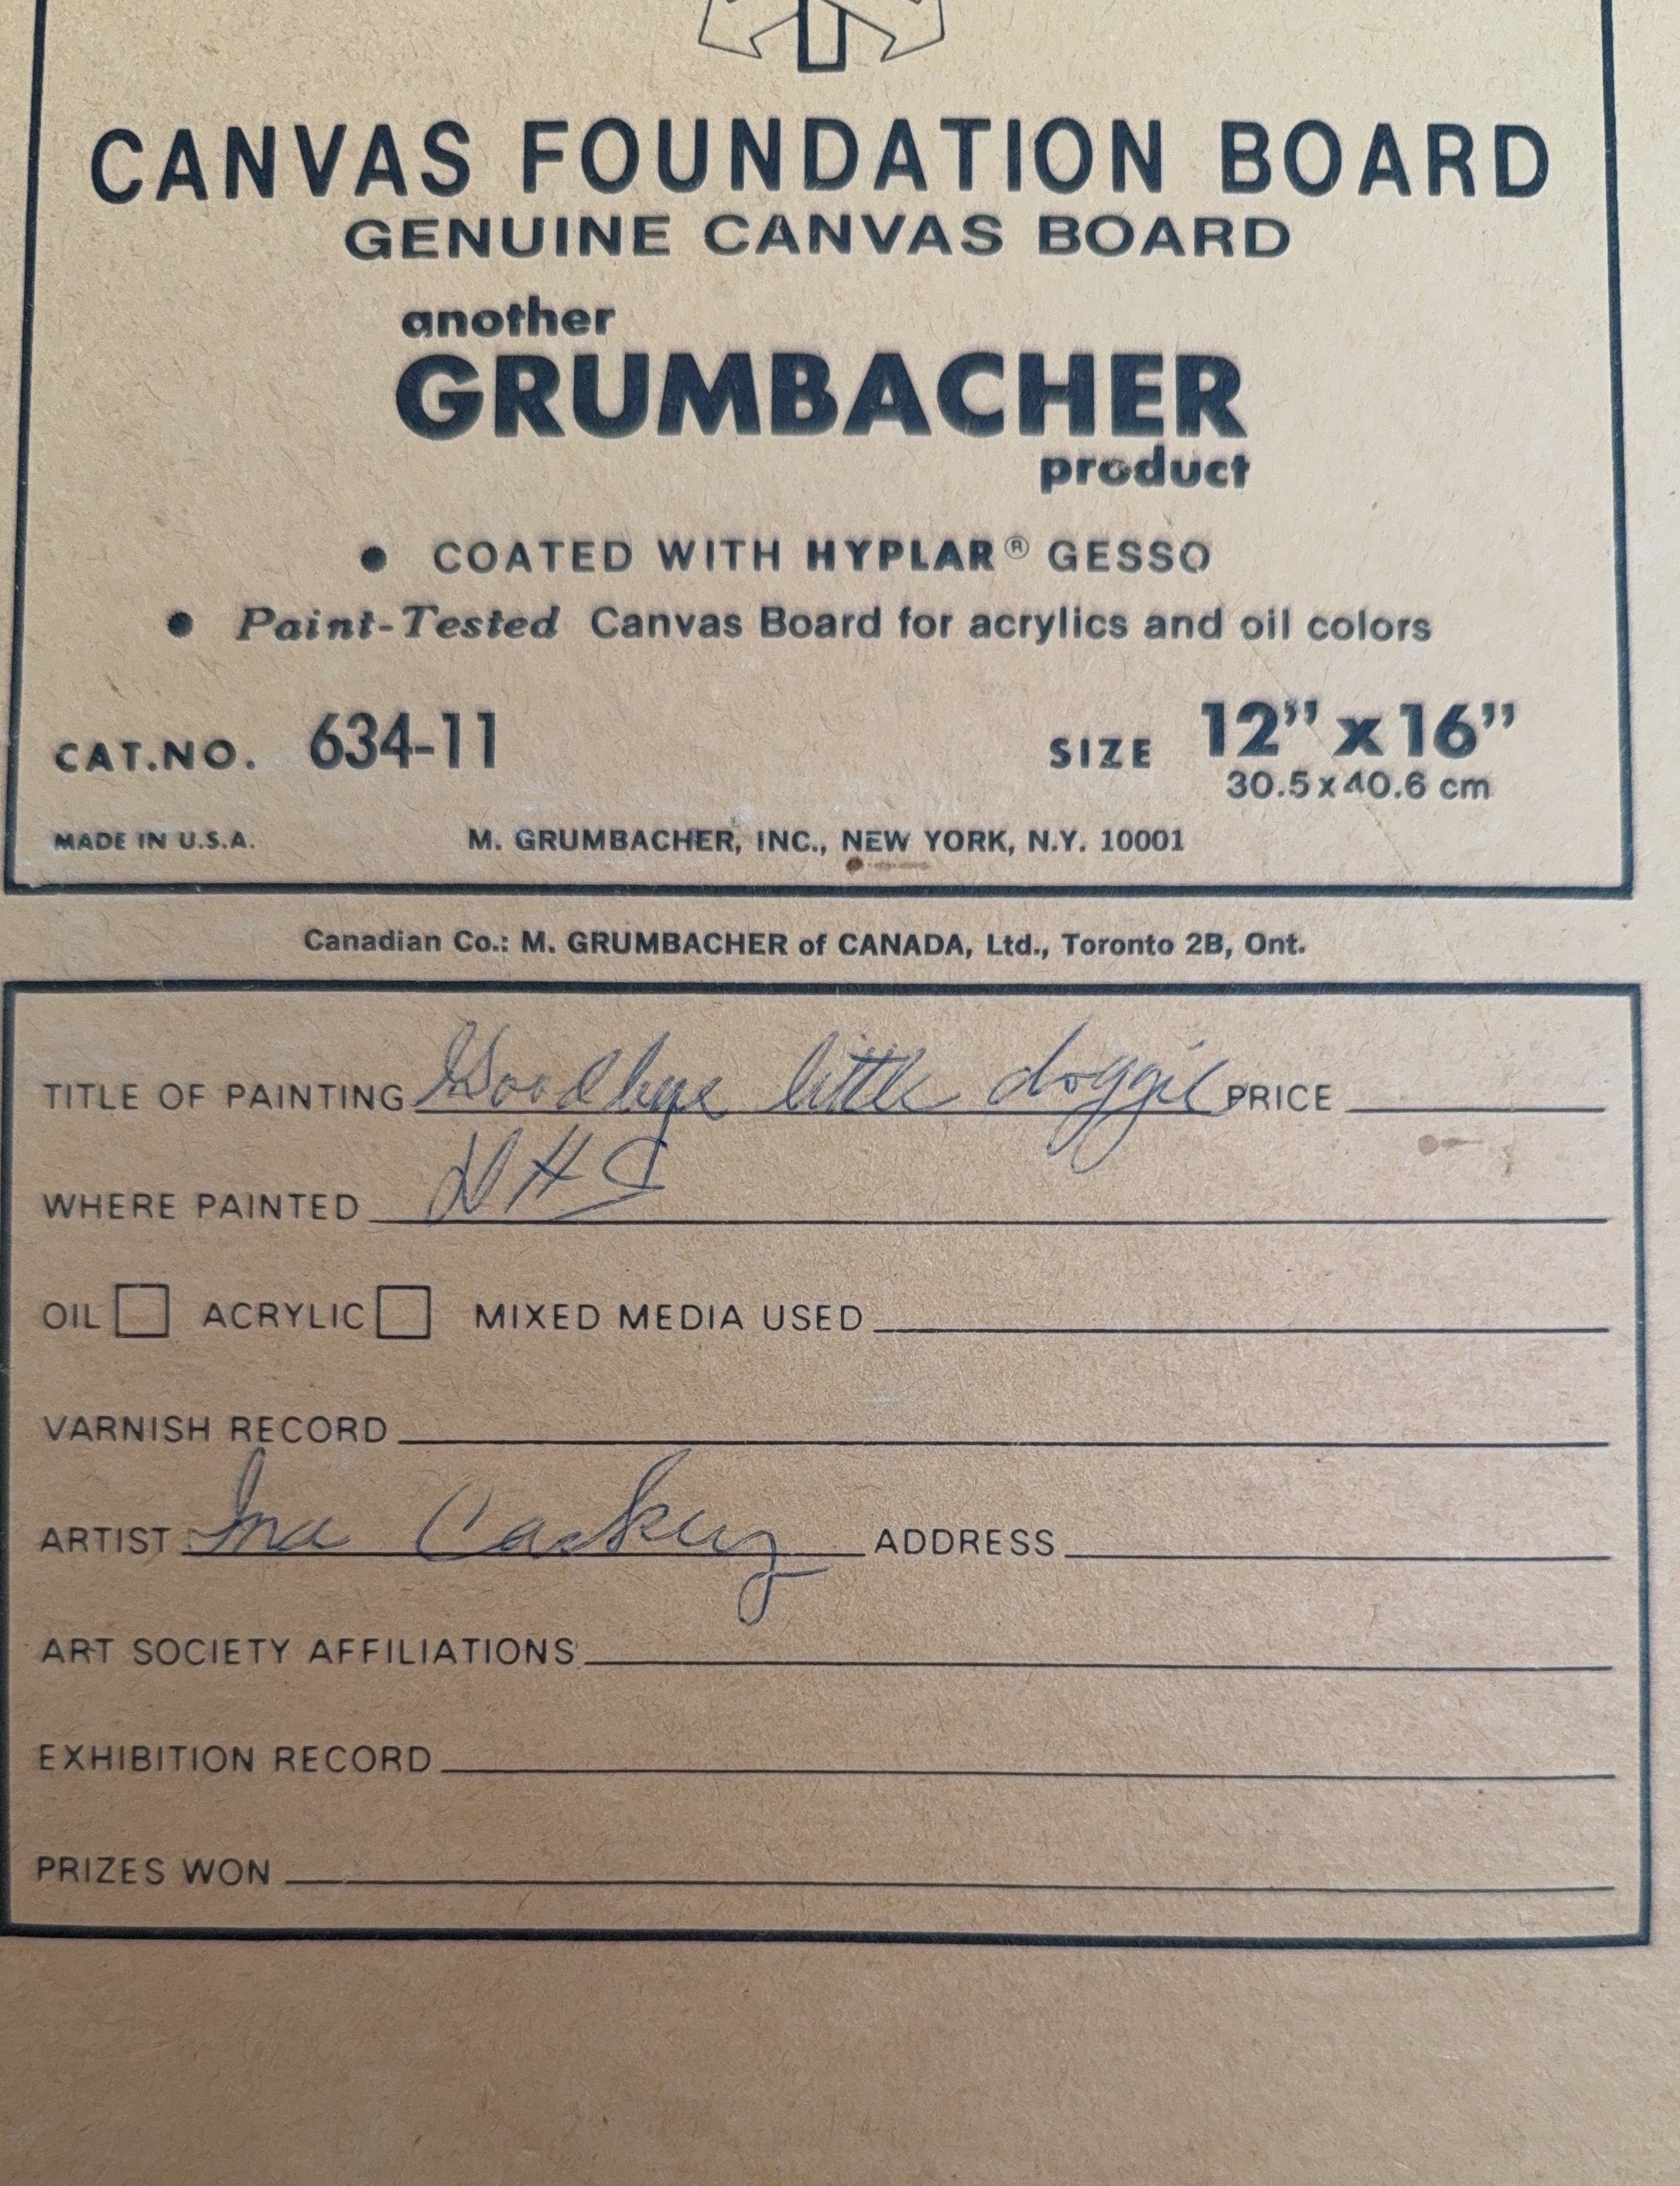 CANVAS FOUNDATION BOARD
GENUINE CANVAS BOARD
another
GRUMBACHER
product
• COATED WITH HYPLAR® GESSO
• Paint-Tested Canvas Board for acrylics and oil colors
CAT.NO. 634-11 SIZE 12” x 16”
30.5 x 40.6 cm
MADE IN U.S.A. M. GRUMBACHER, INC., NEW YORK, N.Y. 10001
Canadian Co.: M. GRUMBACHER of CANADA, Ltd., Toronto 2B, Ont.
TITLE OF PAINTING Goodbye little doggie PRICE
WHERE PAINTED
OIL ACRYLIC MIXED MEDIA USED
VARNISH RECORD
ARTIST Ina Caskey ADDRESS
ART SOCIETY AFFILIATIONS
EXHIBITION RECORD
PRIZES WON